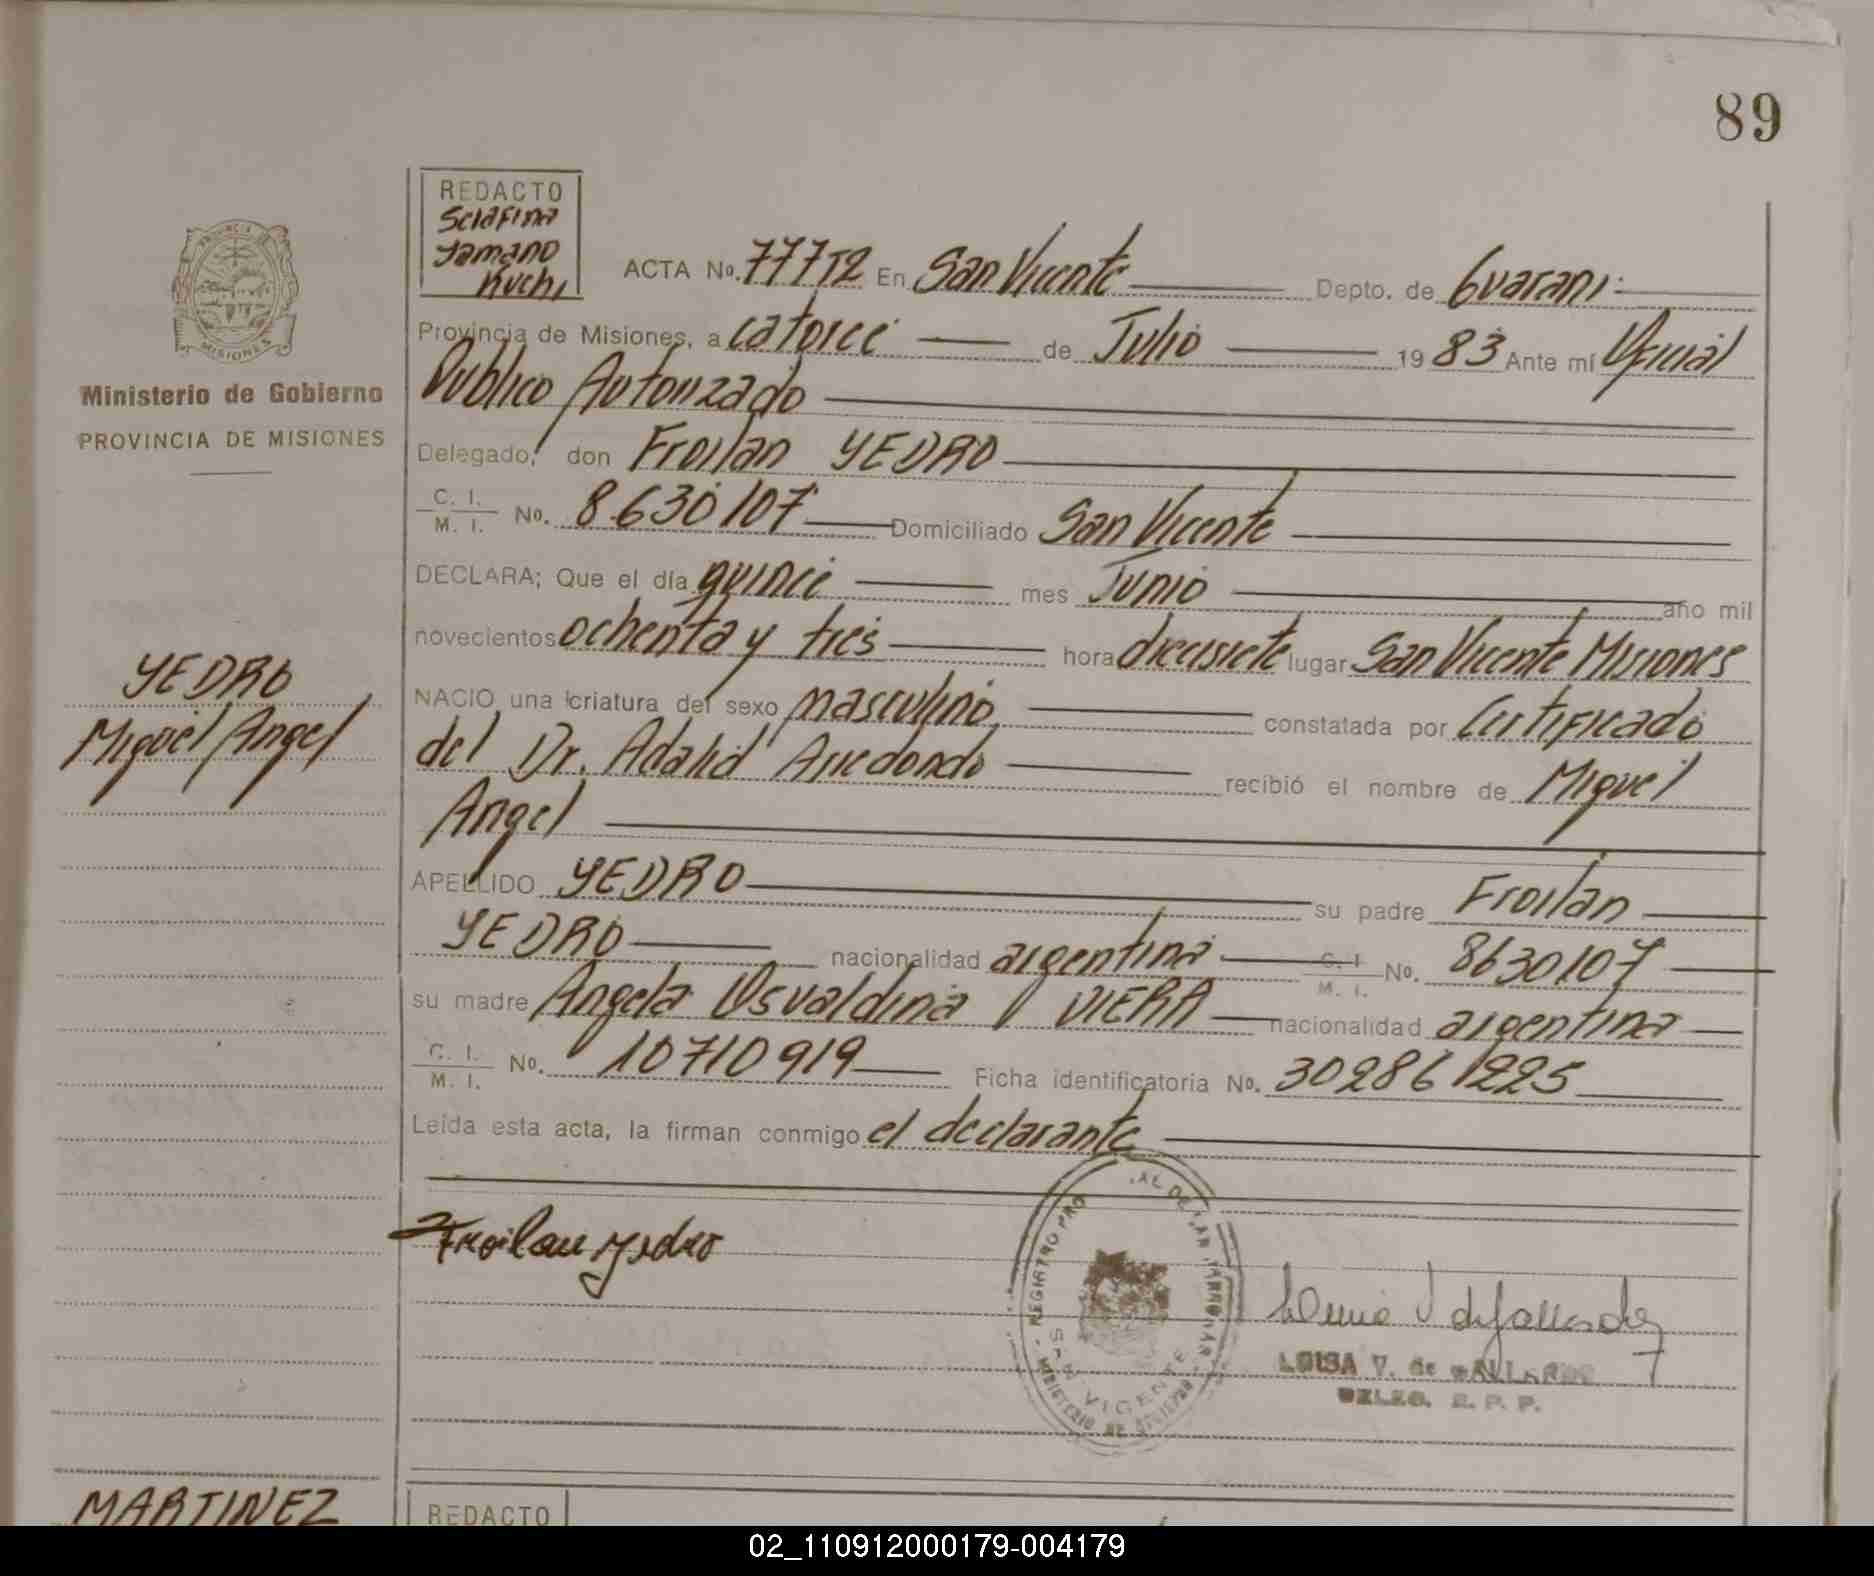 89
REDACTO
Serafina
Tamano
Kuchi
ACTA No. 777T2 En San Vicente Depto. de Guarani
Provincia de Misiones, a catorce de Julio 1983 Ante mí Oficial
Publico Autorizado
Delegado, don Froilan YEDRO
C. I.
M. I. No. 8630107 Domiciliado San Vicente
DECLARA; Que el día quince mes Junio año mil
novecientos ochenta y tres hora diecisiete lugar San Vicente Misiones
NACIO una criatura del sexo masculino, constatada por Certificado
del Dr. Adalid Arredondo recibió el nombre de Miguel
Angel
APELLIDO YEDRO su padre Froilan
YEDRO nacionalidad argentina C. I.
M. I. No. 8630107
su madre Angela Osvaldina VIERA nacionalidad argentina
C. I.
M. I. No. 10710919 Ficha identificatoria No. 302861225
Leída esta acta, la firman conmigo el declarante
Froilan Yedro
LUISA V. de GALLARDO
DELEG. R. P. P.
SAN VICENTE
PROVINCIA DE
MISIONES
Ministerio de Gobierno
PROVINCIA DE MISIONES
YEDRO
Miguel Angel
MARTINEZ
REDACTO
02_110912000179-004179